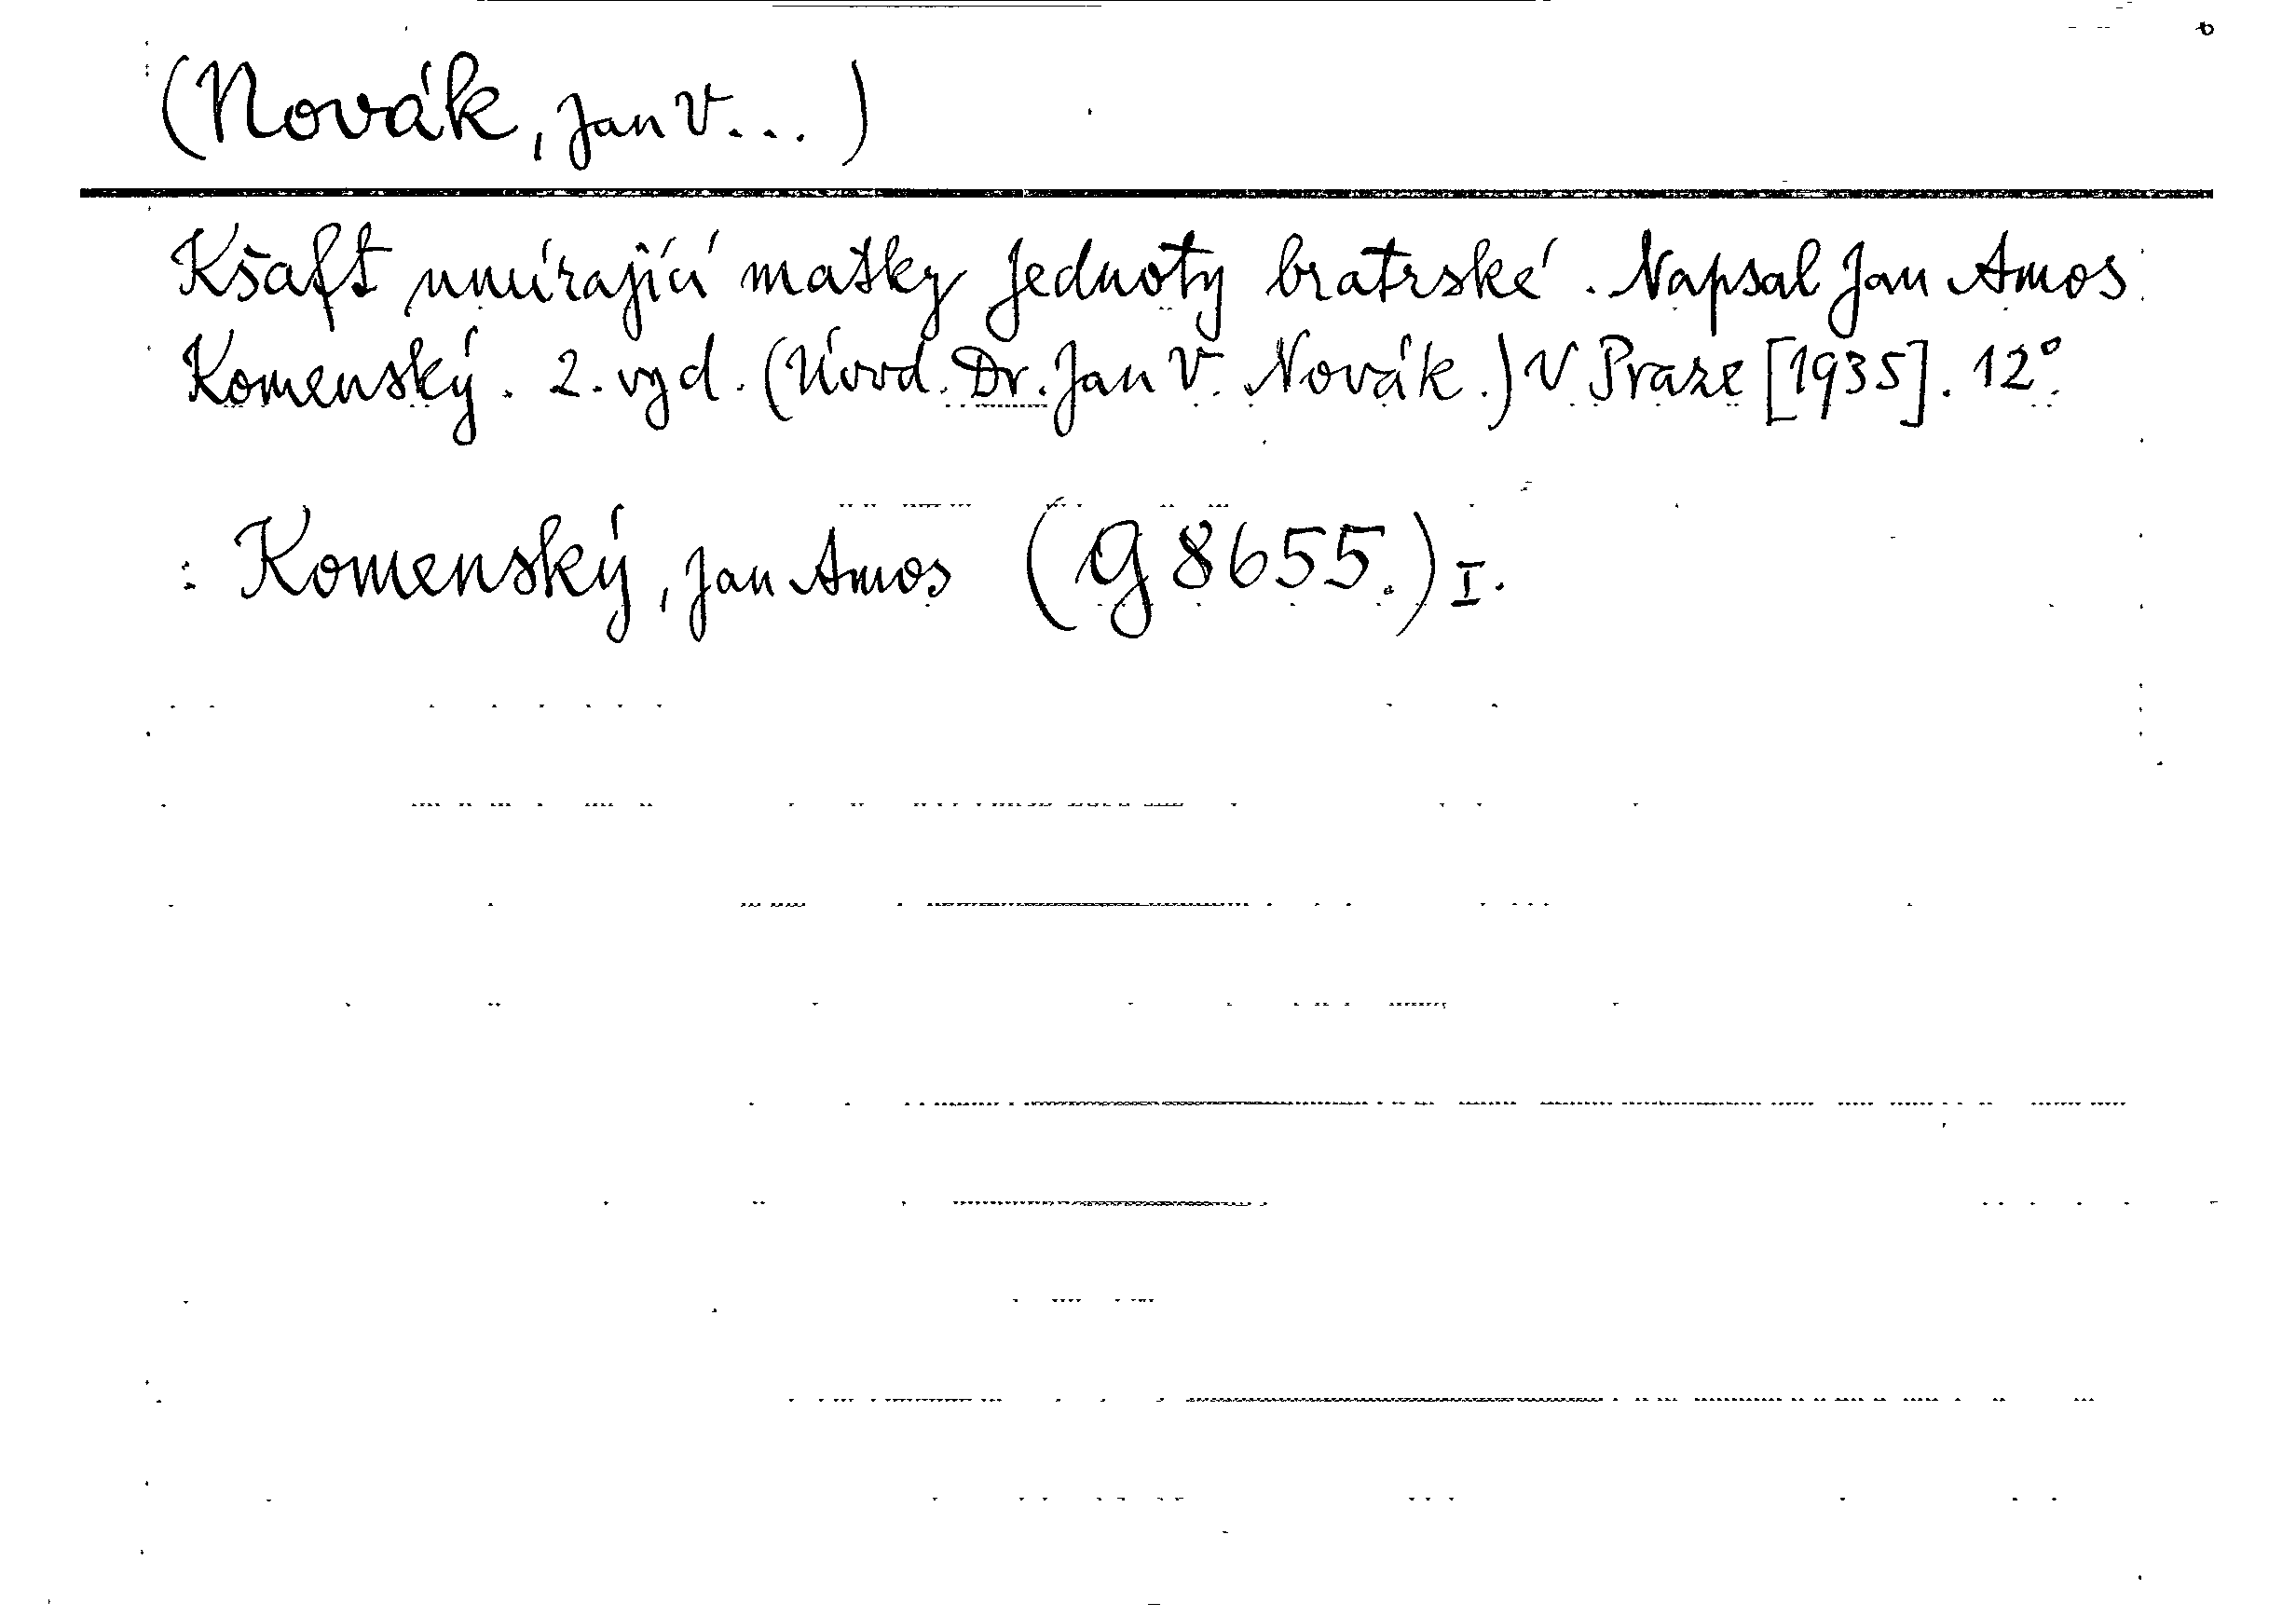 (Novák, Jan V...)
Kšaft umírající matky Jednoty bratrské. Napsal Jan Amos
Komenský. 2. vyd. (Úvod. Dr. Jan V. Novák.) V Praze [1935]. 12°.
: Komenský, Jan Amos (G 8655.) I.